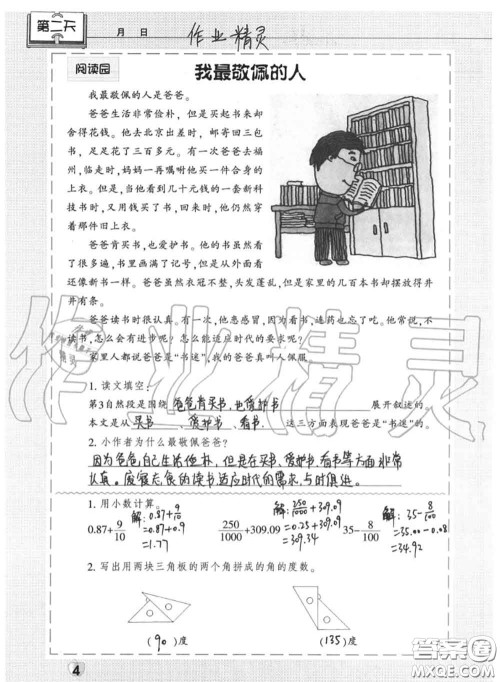 第二天 月 日 作业精灵
阅读园
我最敬佩的人
我最敬佩的人是爸爸。
爸爸生活非常俭朴，但是买起书来却
舍得花钱。他去北京出差时，邮寄回三包
书，足足花了三百多元。有一次爸爸去福
州，临走时，妈妈一再嘱咐他买一件合身的
上衣。但是，当他看到几十元钱的一套新科
技书时，又用钱买了书，回来时，他仍然穿
着那件旧上衣。
爸爸肯买书，也爱护书。他的书虽然看
了很多遍，书里画满了记号，但是从外面看
还像新书一样。爸爸虽然衣冠不整，头发蓬乱，但是家里的几百本书却摆放得井
井有条。
爸爸读书时很认真。有一次，他患感冒，因为看书，连药也忘了吃。他常说，不
读书，怎么会有进步？怎么能适应时代的要求呢？
家里人都说爸爸是“书迷”。我的爸爸真叫人佩服。
1. 读文填空：
第3自然段是围绕 爸爸肯买书，也爱护书 展开叙述的。
本文是从 买书 、 爱护书 、 看书 这三方面表现爸爸是“书迷”的。
2. 小作者为什么最敬佩爸爸？
因为爸爸自己生活俭朴，但是在买书、爱护书、看书等方面非常
认真。废寝忘食的读书适应时代的需求，与时俱进。
1. 用小数计算。
0.87+9/10 解：0.87+9/10 =0.87+0.9 =1.77
250/1000+309.09 解：250/1000+309.09 =0.25+309.09 =309.34
35-8/100 解：35-8/100 =35.00-0.08 =34.92
2. 写出用两块三角板的两个角拼成的角的度数。
（90）度 （135）度
4
作业精灵
答案圈
MXQE.COM